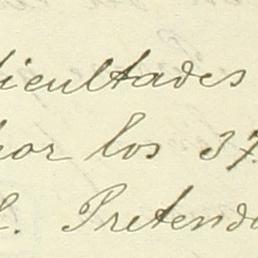 dificultades
por los 37
Pretende